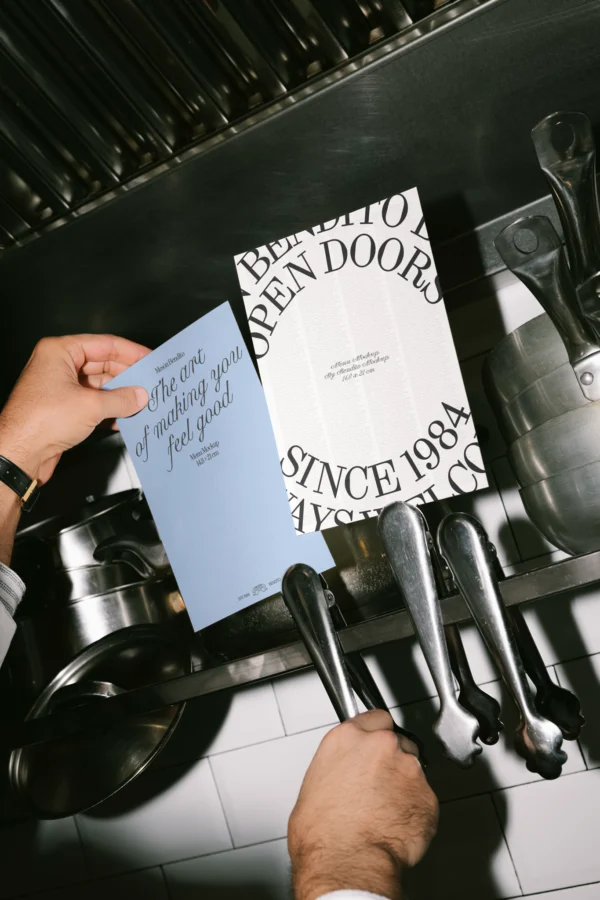 Menu Bendito
The art
of making you
feel good
Menu Mockup
14.8 × 21 cm
BENDITO
OPEN DOORS
Menu Mockup
By Bendito Mockup
14.8 x 21 cm
SINCE 1984